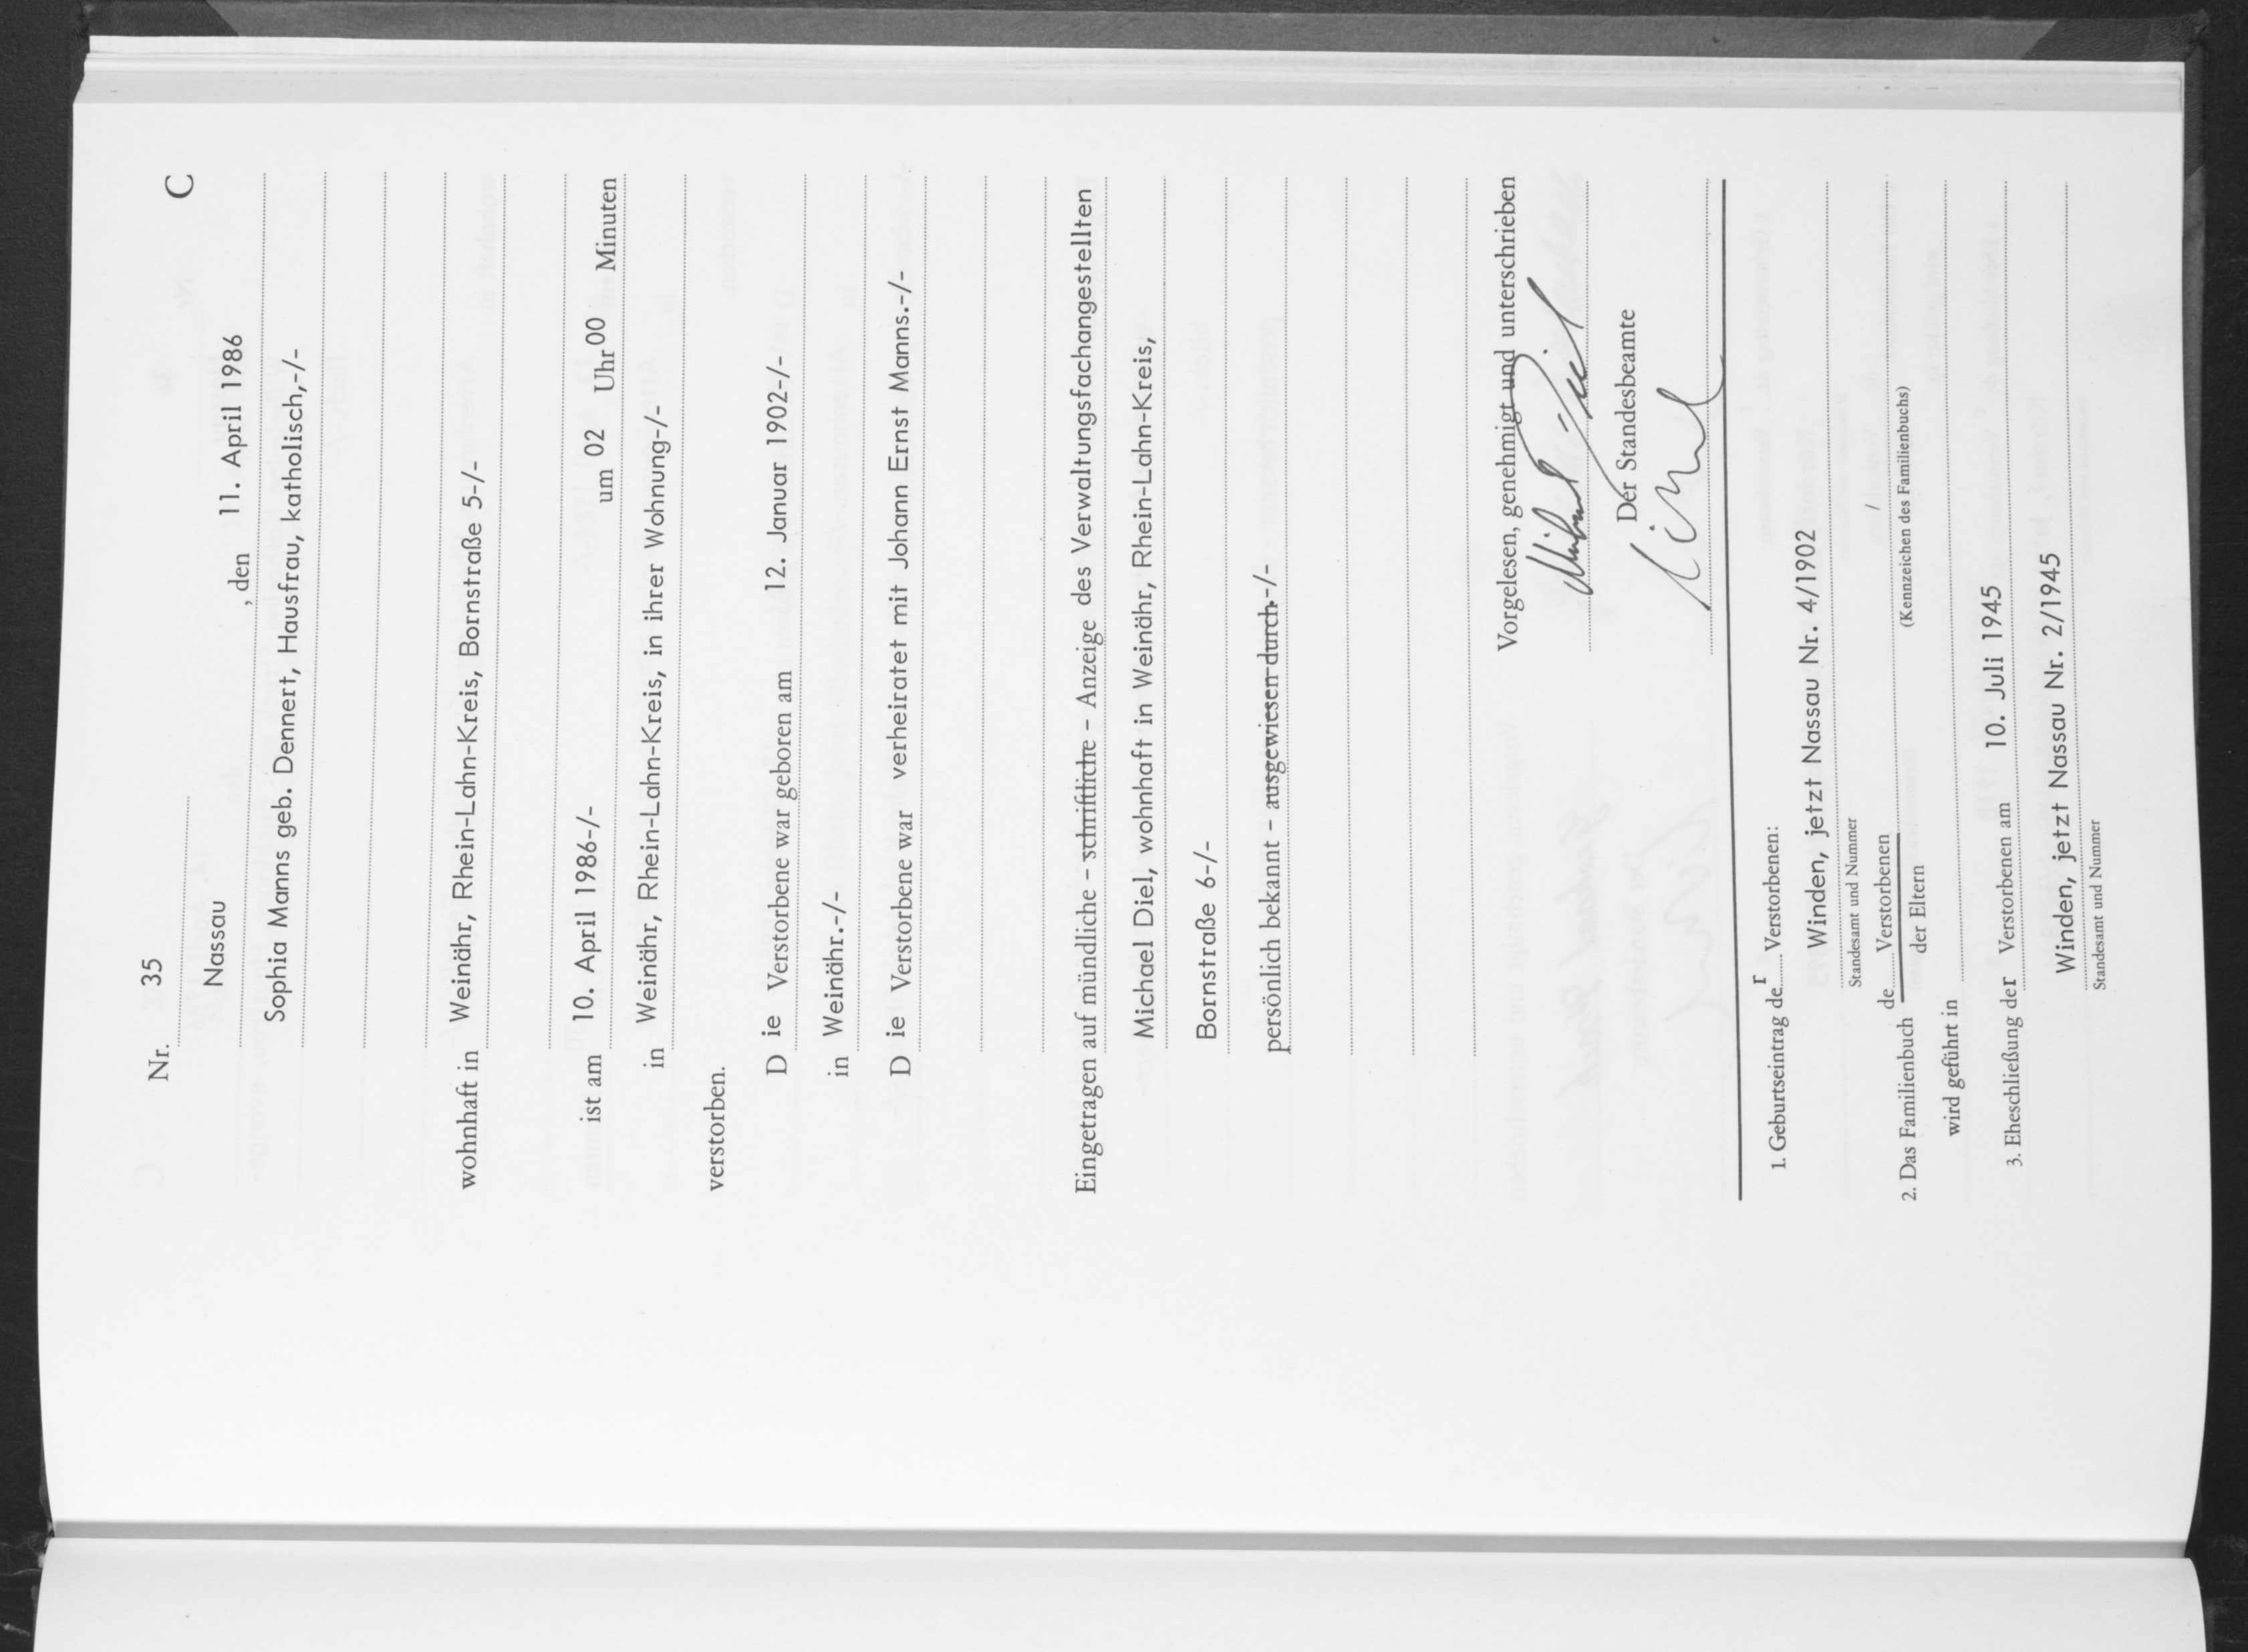 C
Nr. 35
Nassau , den 11. April 1986
Sophia Manns geb. Dennert, Hausfrau, katholisch,-/-
wohnhaft in Weinähr, Rhein-Lahn-Kreis, Bornstraße 5-/-
ist am 10. April 1986-/- um 02 Uhr 00 Minuten
in Weinähr, Rhein-Lahn-Kreis, in ihrer Wohnung-/-
verstorben.
D ie Verstorbene war geboren am 12. Januar 1902-/-
in Weinähr.-/-
D ie Verstorbene war verheiratet mit Johann Ernst Manns.-/-
Eingetragen auf mündliche – schriftliche – Anzeige des Verwaltungsfachangestellten
Michael Diel, wohnhaft in Weinähr, Rhein-Lahn-Kreis,
Bornstraße 6-/-
persönlich bekannt – ausgewiesen durch.-/-
Vorgelesen, genehmigt und unterschrieben
Michael Diel
Der Standesbeamte
1. Geburtseintrag der Verstorbenen:
Winden, jetzt Nassau Nr. 4/1902
Standesamt und Nummer
2. Das Familienbuch de Verstorbenen /
der Eltern (Kennzeichen des Familienbuchs)
wird geführt in
3. Eheschließung der Verstorbenen am 10. Juli 1945
Winden, jetzt Nassau Nr. 2/1945
Standesamt und Nummer